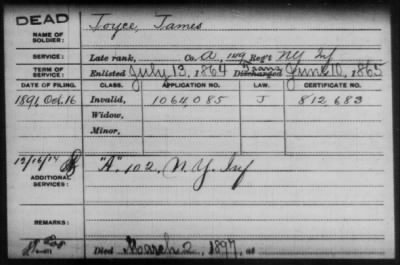 DEAD
NAME OF SOLDIER: Joyce, James
SERVICE: Late rank, Co. A, 149 Reg't NY Inf
TERM OF SERVICE: Enlisted July 13, 1864 Trans Discharged June 10, 1865
DATE OF FILING. CLASS. APPLICATION NO. LAW. CERTIFICATE NO.
1891 Oct. 16 Invalid, 1064,085 J 812,683
Widow,
Minor,
12/16/14
ADDITIONAL SERVICES: "A" 102, N.Y. Inf
REMARKS:
Died March 2, 1897, at